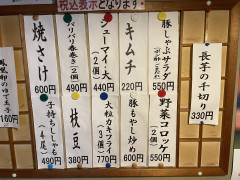 税込表示となります。
長芋の千切り
330円
豚しゃぶサラダ
550円
キムチ
220円
シューマイ・大
(2個)
440円
パリパリ春巻き(2個)
490円
焼さけ
600円
野菜コロッケ
(2個)
550円
豚もやし炒め
600円
大粒カキフライ
(3個)
770円
枝豆
380円
子持ちししゃも
490円
160円